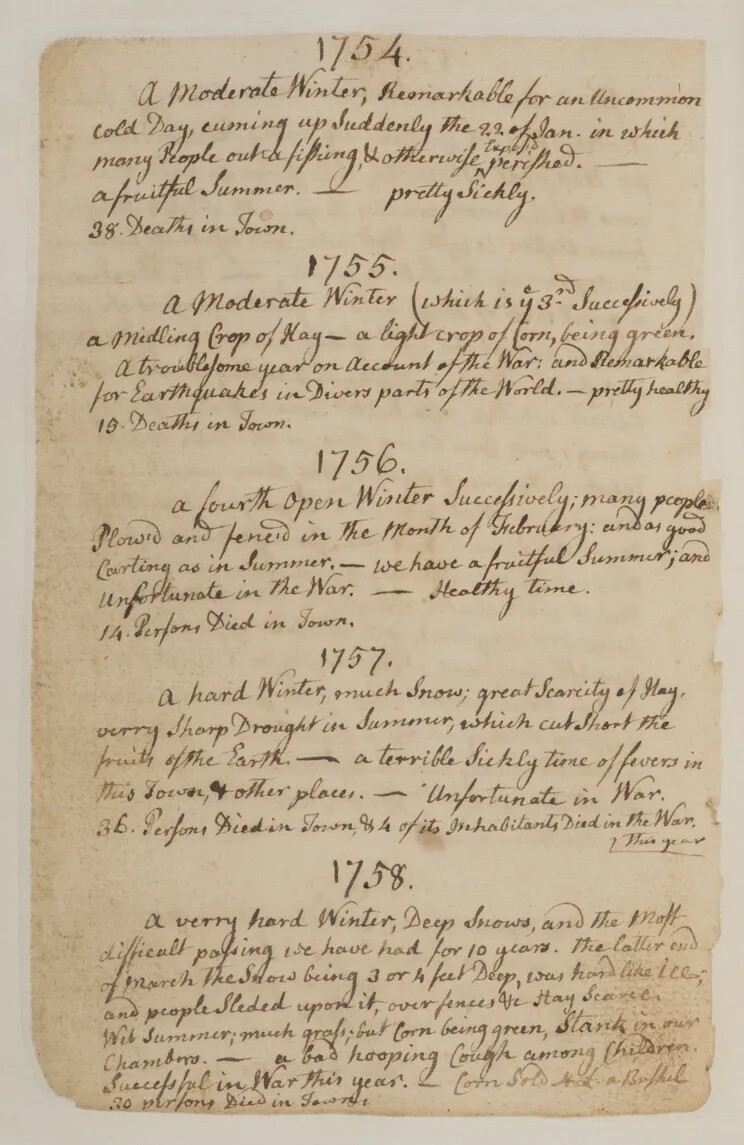 1754.
A Moderate Winter, Remarkable for an Uncommon
cold Day, cuming up Suddenly the 22. of Jan. in which
many People out a fishing, & otherwise Expos'd perished. —
a fruitful Summer. — pretty Sickly.
38. Deaths in Town.
1755.
A Moderate Winter (which is ye 3rd Successively)
a Midling Crop of Hay — a light crop of Corn, being green.
A troublesome year on Account of the War: and Remarkable
for Earthquakes in Divers parts of the World. — pretty healthy
15. Deaths in Town.
1756.
a fourth Open Winter Successively; many people
Plow'd and fenc'd in the Month of February: and as good
Carting as in Summer. — we have a fruitful Summer; and
Unfortunate in the War. — Healthy time.
14. Persons Died in Town.
1757.
A hard Winter, much Snow; great Scarcity of Hay.
verry Sharp Drought in Summer, which cut Short the
fruits of the Earth. — a terrible Sickly time of fevers in
this Town, & other places. — Unfortunate in War.
36. Persons Died in Town, & 4 of its Inhabitants Died in the War.
this year
1758.
A verry hard Winter, Deep Snows, and the Most
difficult passing we have had for 10 years. the latter end
of March the Snow being 3 or 4 feet Deep, was hard like ice;
and people Sleded upon it, over fences &c Hay Scarce.
Wet Summer; much grass; but Corn being green, Stank in our
Chambers. — a bad hooping Cough among Children.
Successful in War this year. — Corn Sold a Bushel
20 persons Died in Town.